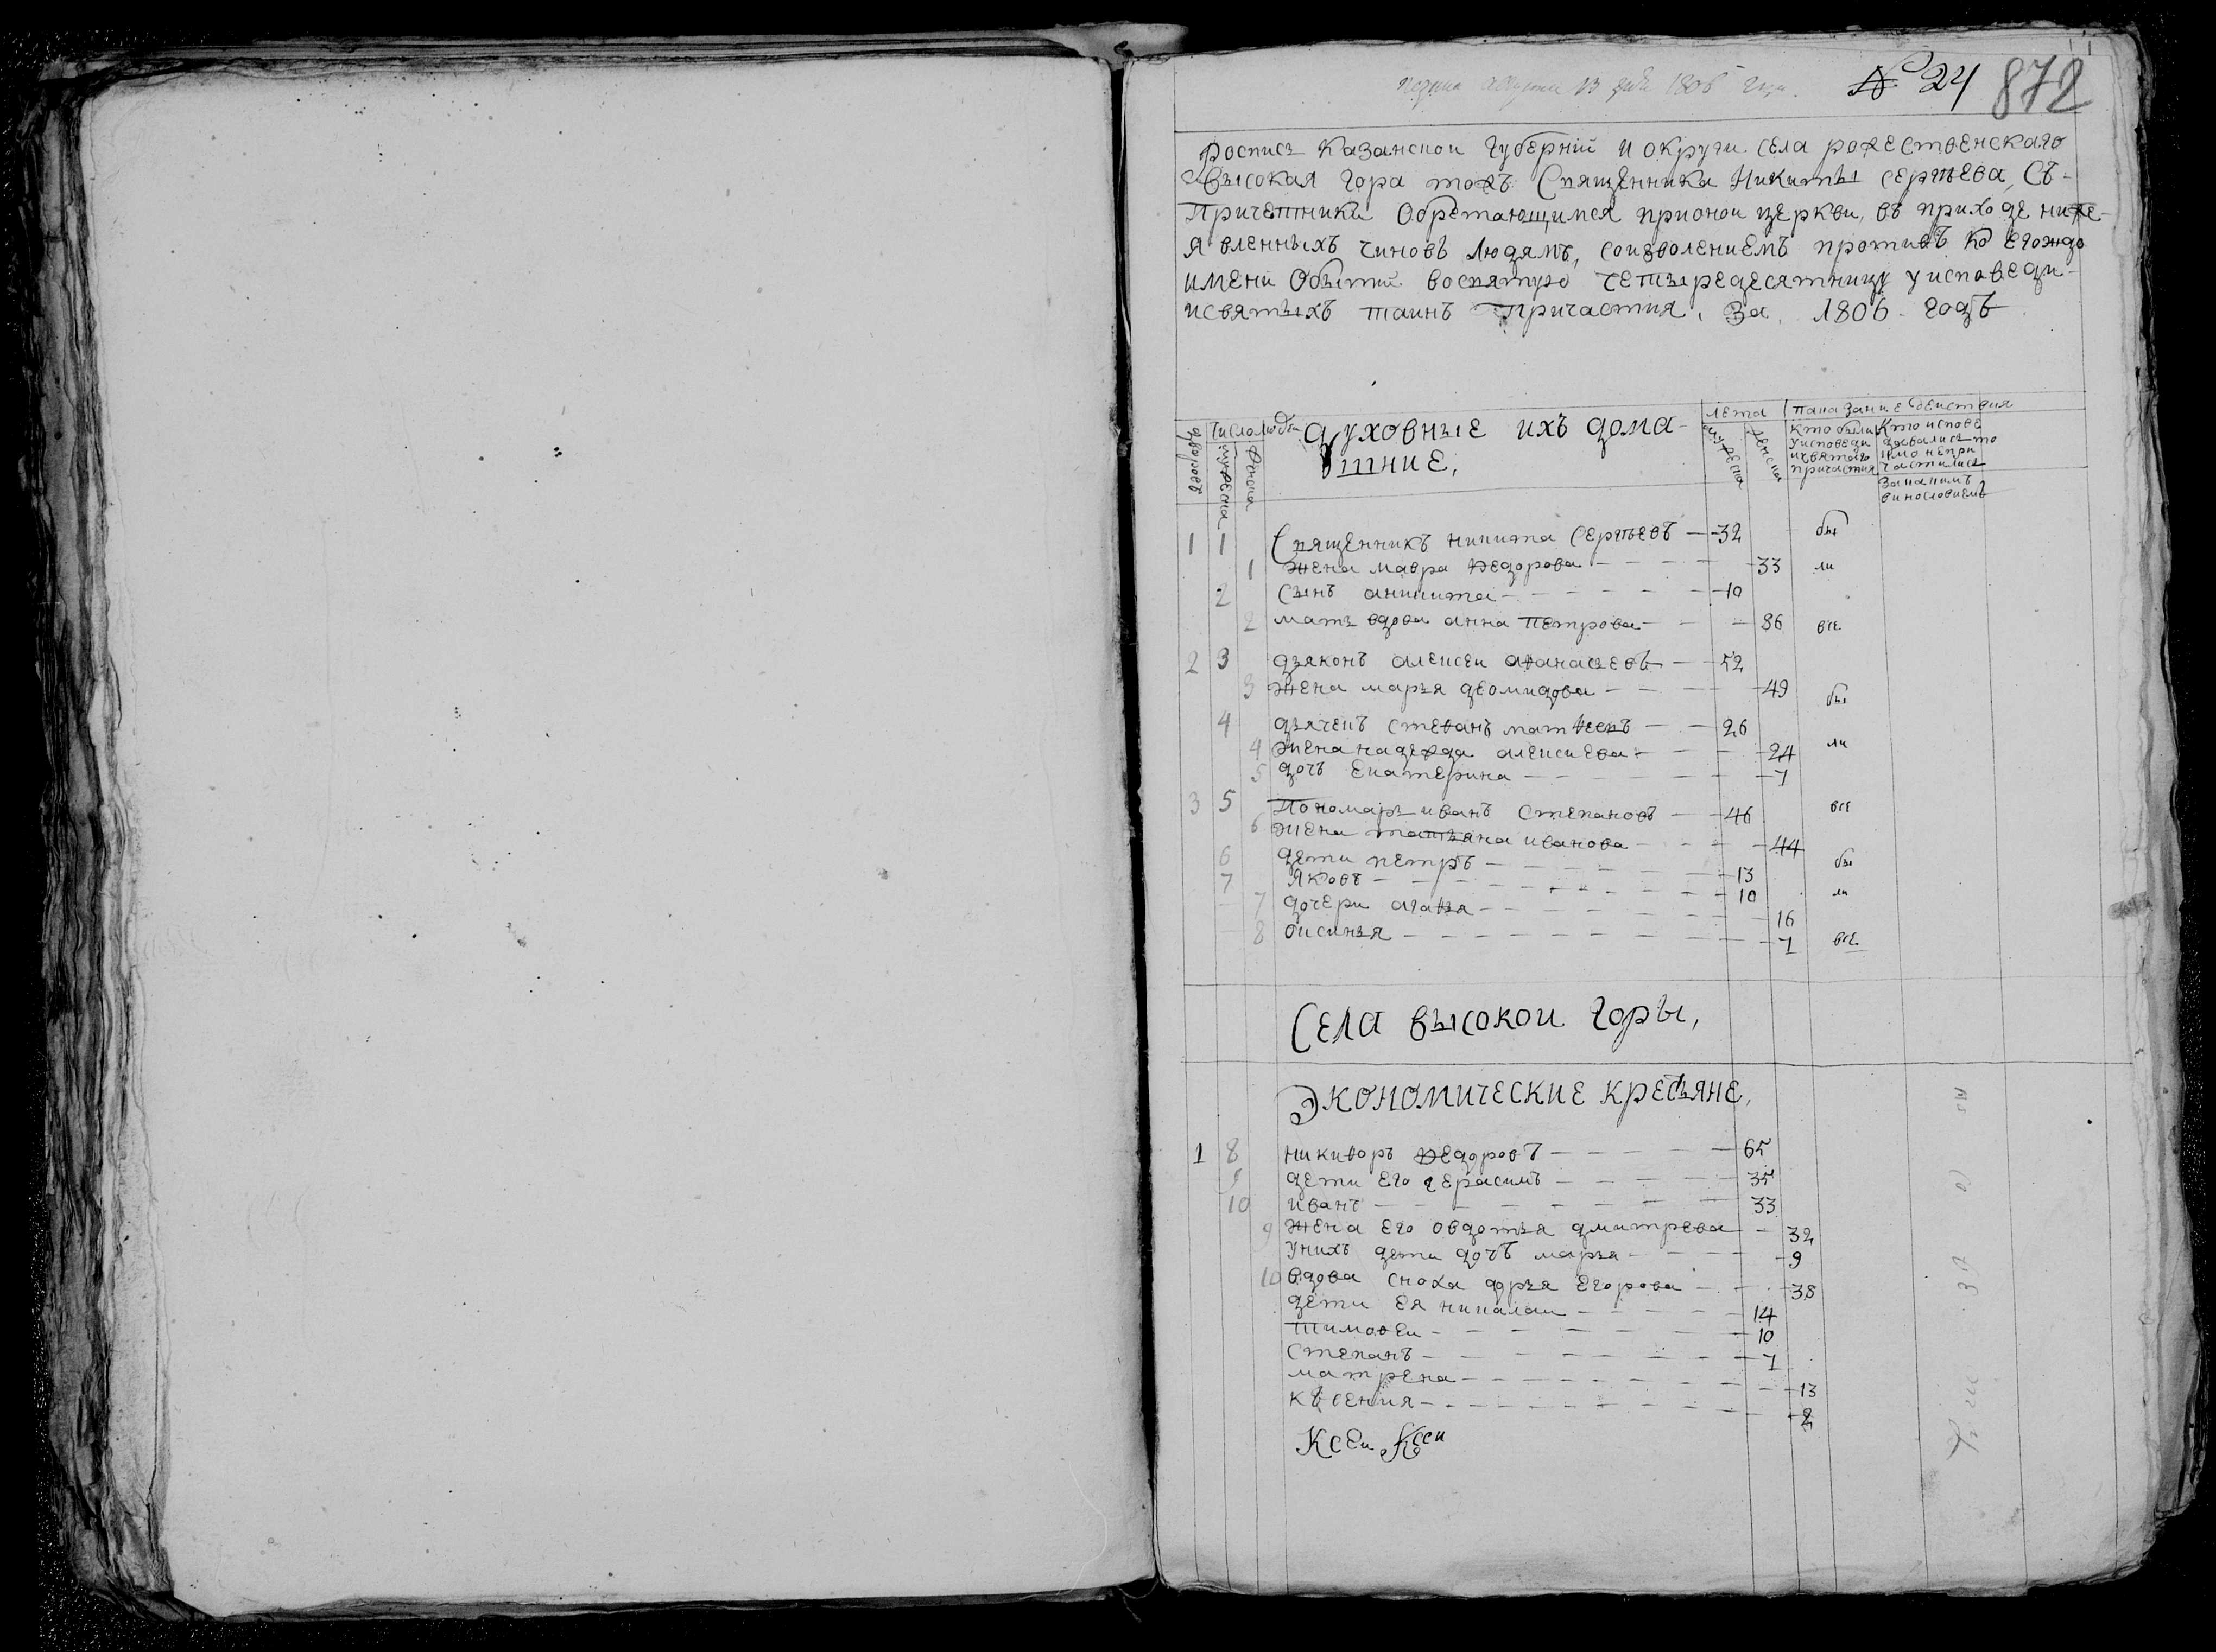 августа 13 дня 1806 года. № 24 872
Роспись Казанской губернїи и округи села рожественскаго
Высокая гора тожъ Священника Никиты Сергѣева, Съ-
Причетники Обретающимся прионой церкви, въ приходе ниже-
явленныхъ чиновъ людямъ, соизъявлениемъ противъ коегождо
имени Обытїи восвятую четыредесятницу уисповеди-
исвятыхъ таинъ Причастия, За 1806 годъ
дворовъ
Число людей
мужеска
женска
духовные ихъ дома-
шние,
лета
мужеска
женска
Показание действия
Кто были уисповеди исвятаго причастия
Кто исповедовались то кмо непричастились
Закакимъ винословиемъ
1 1 Священникъ никита Сергѣевъ — 32 бы
1 жена мавра ѳедорова — 33 ли
2 Сынъ аникита — 10
2 мать вдова анна петрова — 86 все
2 3 дьяконъ алексеи аѳанасьевъ — 52
3 жена марья деомидова — 49 бы
4 дьячекъ стеѳанъ матвеевъ — 26
4 жена надежда алексиева — 24 ли
5 дочь екатерина — 1
3 5 Пономарь иванъ степановъ — 46 все
6 жена татьяна иванова — 44
6 дети петръ — 13 бы
7 Яковъ — 10 ли
7 дочери агаѳья — 16
8 оксинья — 1 все
Села высокои горы,
Экономические крестьяне,
1 8 никиѳоръ ѳедоровъ — 65
9 дети его герасимъ — 35
10 иванъ — 33
9 жена его овдотья дмитрева — 32
унихъ дети дочь марья — 9
10 вдова сноха дарья егорова — 38
дети ея николаи — 14
тимоѳеи — 10
степанъ — 7
матрена — 13
късения — 2
Ксен Ксен